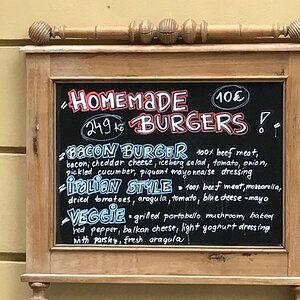 HOMEMADE 10€
249 Kč BURGERS!
BACON BURGER 100% beef meat,
bacon, cheddar cheese, iceberg salad, tomato, onion,
pickled cucumber, piquant mayonnaise dressing
ITALIAN STYLE - 100% beef meat, mozzarella,
dried tomatoes, arugula, tomato, blue cheese-mayo
VEGGIE - grilled portobello mushroom, baked
red pepper, balkan cheese, light yoghurt dressing
with parsley, fresh arugula